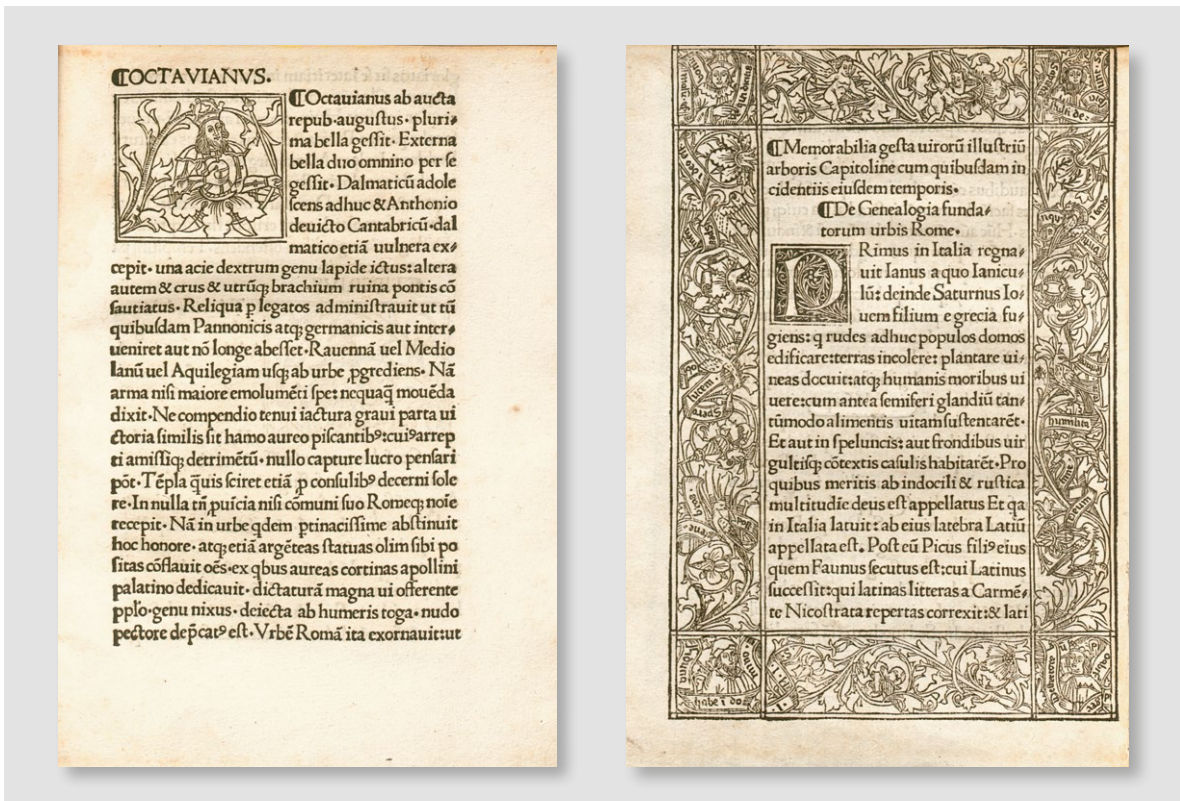 ¶OCTAVIANVS.
¶Octauianus ab aucta
repub·augustus· pluri⸗
ma bella gessit· Externa
bella duo omnino per se
gessit· Dalmaticũ adole
scens adhuc & Anthonio
deuicto Cantabricũ·dal
matico etiã uulnera ex⸗
cepit· una acie dextrum genu lapide ictus: altera
autem & crus & utrũqꝫ brachium ruina pontis cõ
sautiatus· Reliqua ꝑ legatos administrauit ut tñ
quibusdam Pannonicis atqꝫ germanicis aut inter⸗
ueniret aut nõ longe abesset·Rauennã uel Medio
lanũ uel Aquilegiam usqꝫ ab urbe ꝓgrediens· Nã
arma nisi maiore emolumẽti spe: nequaq̃ mouẽda
dixit·Ne compendio tenui iactura graui parta ui
ctoria similis sit hamo aureo piscantibꝰ:cuiꝰarrep
ti amissiqꝫ detrimẽtũ· nullo capture lucro pensari
põt·Tẽpla q̃uis sciret etiã ꝓ consulibꝰ decerni sole
re·In nulla tñ ꝓuicia nisi cõmuni suo Romeqꝫ noĩe
recepit· Nã in urbe qdem ptinacissime abstinuit
hoc honore· atqꝫ etiã argẽteas statuas olim sibi po
sitas cõflauit oẽs·ex qbus aureas cortinas apollini
palatino dedicauit· dictaturã magna ui offerente
pplo·genu nixus· deiecta ab humeris toga· nudo
pectore dep̃catꝰ est·Vrbẽ Romã ita exornauit:ut
¶Memorabilia gesta uirorũ illustriũ
arboris Capitoline cum quibusdam in
cidentiis eiusdem temporis·
¶De Genealogia funda⸗
torum urbis Rome·
PRimus in Italia regna⸗
uit Ianus a quo Ianicu⸗
lũ: deinde Saturnus Io⸗
uem filium e grecia fu⸗
giens: q rudes adhuc populos domos
edificare:terras incolere: plantare ui⸗
neas docuit:atqꝫ humanis moribus ui
uere:cum antea semiferi glandiũ tan⸗
tũmodo alimentis uitam sustentarẽt·
Et aut in speluncis: aut frondibus uir
gultisqꝫ cõtextis casulis habitarẽt·Pro
quibus meritis ab indocili & rustica
multitudĩe deus est appellatus Et qa
in Italia latuit: ab eius latebra Latiũ
appellata est. Post eũ Picus filiꝰ eius
quem Faunus secutus est:cui Latinus
successit:qui latinas litteras a Carmẽ⸗
te Nicostrata repertas correxit:& lati